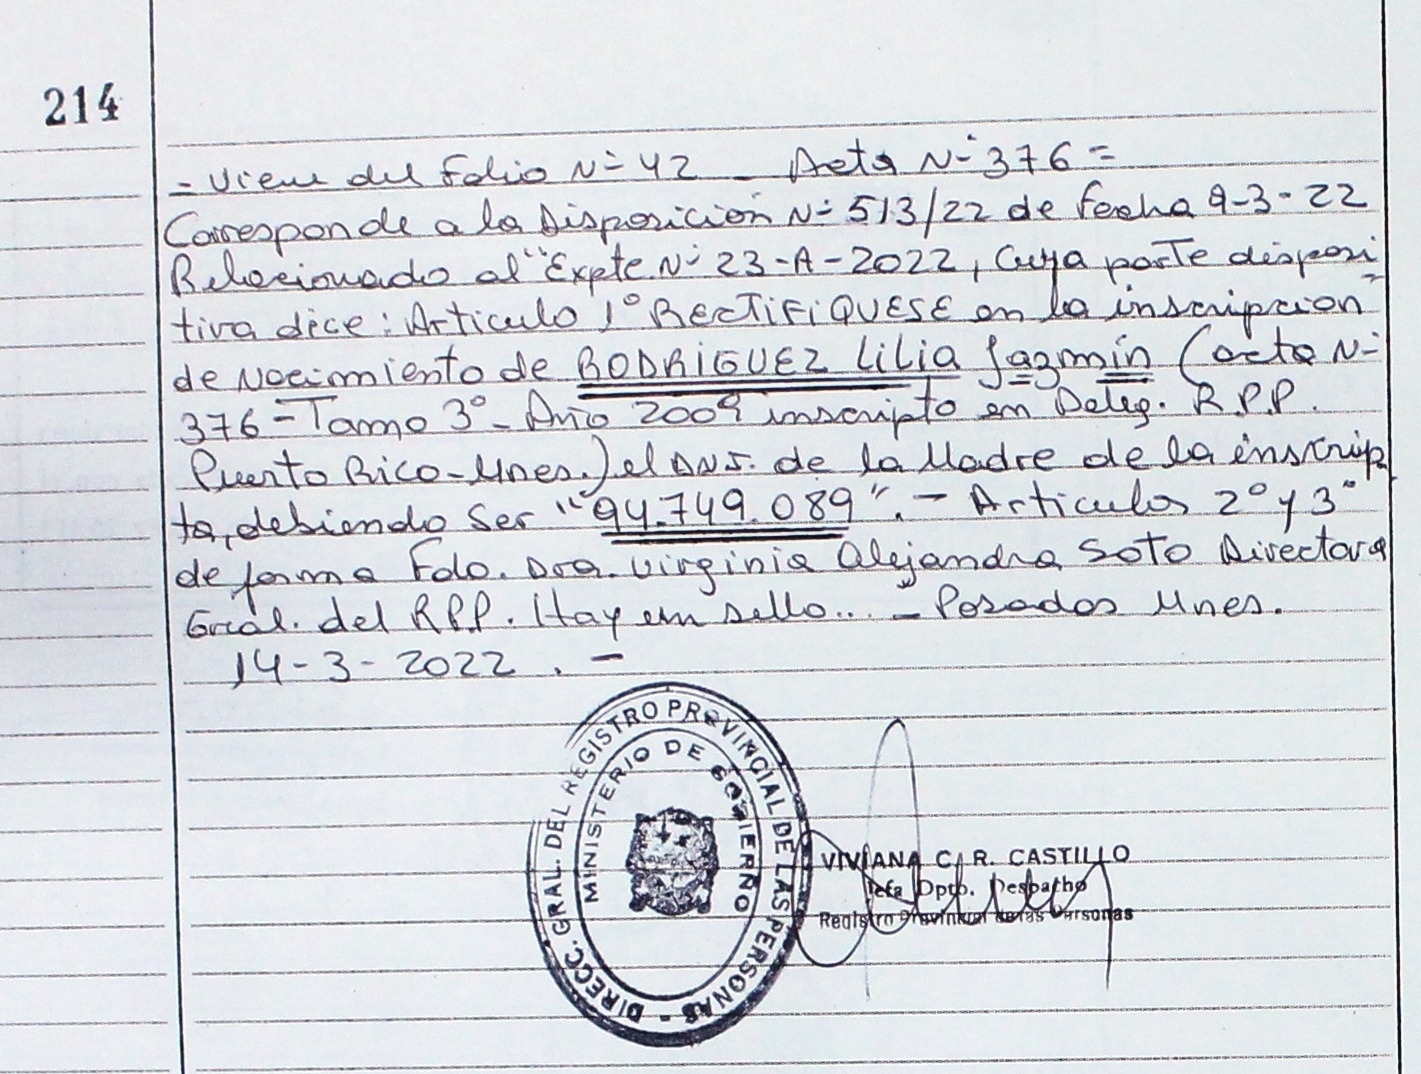 214
- Viene del Folio Nº 42 - Acta Nº 376 =
Corresponde a la Disposición Nº 513/22 de fecha 9-3-22
Relacionado al "Expte. Nº 23-A-2022, Cuya parte disposi
tiva dice: Articulo 1º RECTIFIQUESE en la inscripcion
de Nacimiento de RODRIGUEZ LiLiA Jazmín (acta Nº
376 - Tomo 3º - Año 2009 inscripto en Deleg. R.P.P.
Puerto Rico - Mnes.) el DNI. de la Madre de la inscrip
ta, debiendo ser "94.749.089". - Articulos 2º y 3º
de forma Fdo. Dra. Virginia Alejandra Soto Directora
Gral. del R.P.P. Hay un sello.. - Posadas Mnes.
14-3-2022 . -
DIRECC. GRAL. DEL REGISTRO PROVINCIAL DE LAS PERSONAS -
MINISTERIO DE GOBIERNO
VIVIANA C. R. CASTILLO
Jefa Dpto. Despacho
Registro Provincial de las Personas